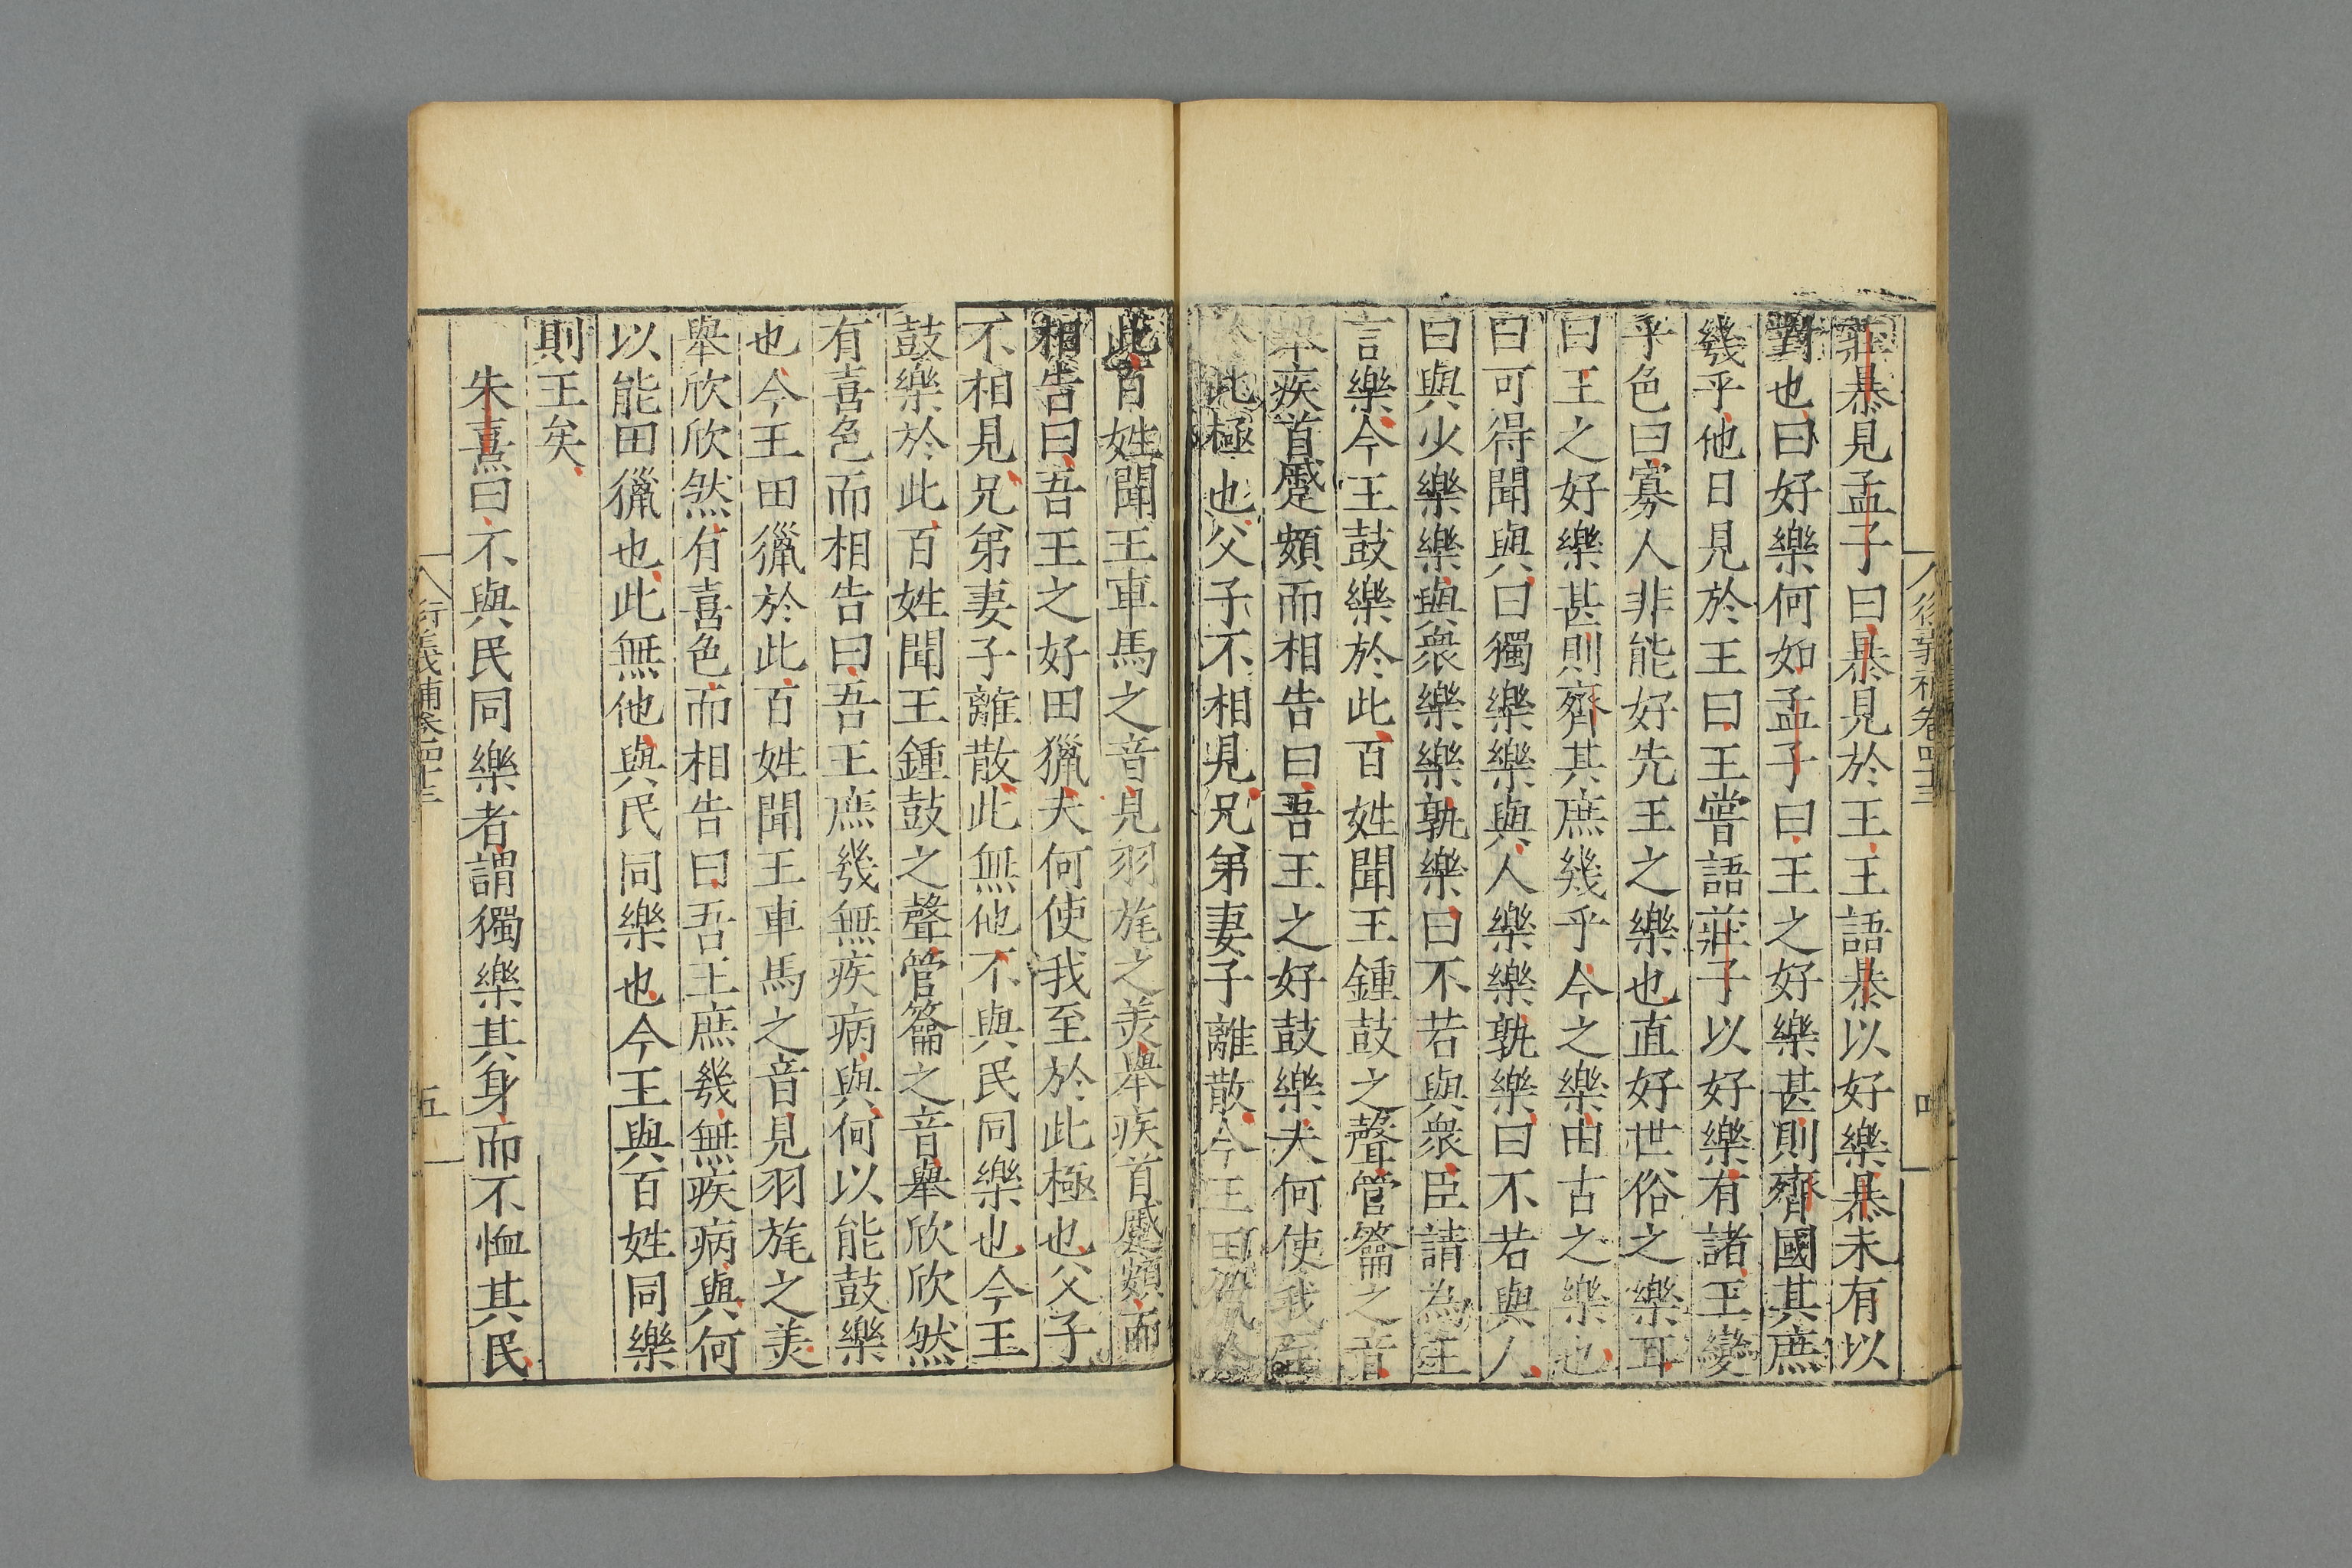 莊暴見孟子曰暴見於王王語暴以好樂暴未有以
對也曰好樂何如孟子曰王之好樂甚則齊國其庶
幾乎他日見於王曰王嘗語莊子以好樂有諸王變
乎色曰寡人非能好先王之樂也直好世俗之樂耳
曰王之好樂甚則齊其庶幾乎今之樂由古之樂也
曰可得聞與曰獨樂樂與人樂樂孰樂曰不若與人
曰與少樂樂與衆樂樂孰樂曰不若與衆臣請為王
言樂今王鼓樂於此百姓聞王鍾鼓之聲管籥之音
舉疾首蹙頞而相告曰吾王之好鼓樂夫何使我至
於此極也父子不相見兄弟妻子離散今王田獵於
此百姓聞王車馬之音見羽旄之羙舉疾首蹙頞而
相告曰吾王之好田獵夫何使我至於此極也父子
不相見兄弟妻子離散此無他不與民同樂也今王
鼓樂於此百姓聞王鍾鼓之聲管籥之音舉欣欣然
有喜色而相告曰吾王庶幾無疾病與何以能鼓樂
也今王田獵於此百姓聞王車馬之音見羽旄之羙
舉欣欣然有喜色而相告曰吾王庶幾無疾病與何
以能田獵也此無他與民同樂也今王與百姓同樂
則王矣
朱熹曰不與民同樂者謂獨樂其身而不恤其民
衍義補卷四十三
五